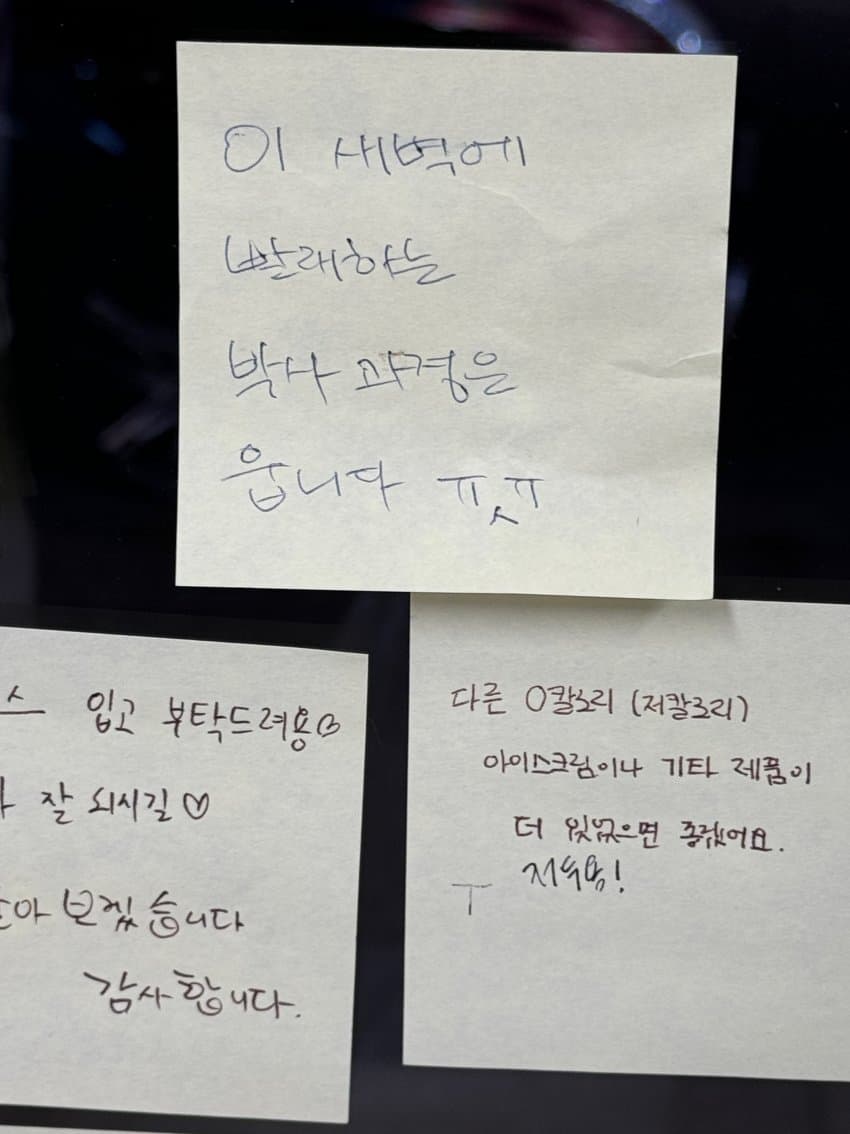 이 새벽에
빨래하는
박사 과정은
웁니다 ㅠㅅㅠ
스 입고 부탁드려용♡
잘 되시길♡
아 보겠습니다
감사합니다.
다른 0칼로리 (저칼로리)
아이스크림이나 기타 제품이
더 있었으면 좋겠어요.
저두용!
ㅜ